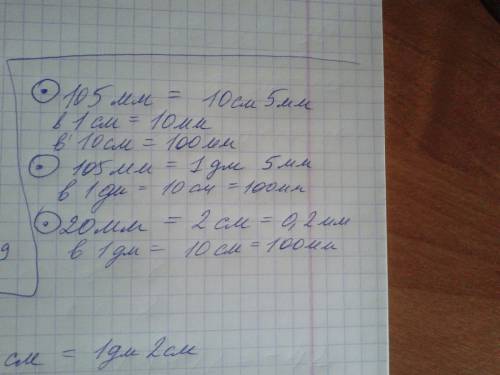 105 мм = 10 см 5 мм
в 1 см = 10 мм
в 10 см = 100 мм
105 мм = 1 дм 5 мм
в 1 дм = 10 см = 100 мм
20 мм = 2 см = 0,2 мм
в 1 дм = 10 см = 100 мм
9
см = 1 дм 2 см